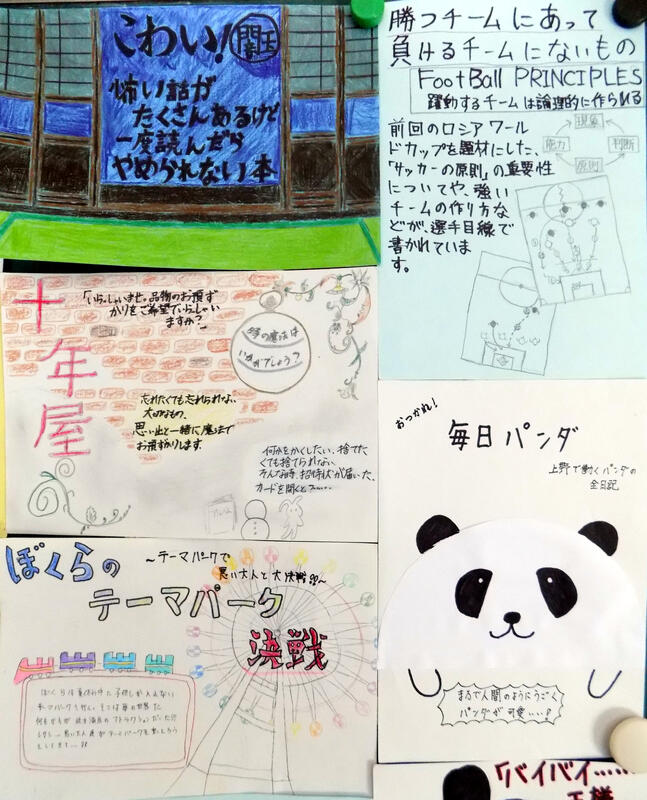 こわい! 闇王
怖い話が
たくさんあるけど
一度読んだら
やめられない本
勝つチームにあって
負けるチームにないもの
FootBall PRINCIPLES
躍動するチームは論理的に作られる
前回のロシアワール
ドカップを題材にした、
「サッカーの原則」の重要性
についてや、強い
チームの作り方な
どが、選手目線で
書かれていま
す。
現象
能力
判断
原則
十年屋
「いらっしゃいませ。品物のお預ず
かりをご希望でいらっしゃい
ますか?」
時の魔法は
いかがでしょう?
忘れたくても忘れられない
大切なもの、
思い出と一緒に魔法で
お預かりします。
何かをかくしたい、捨てた
くても捨てられない
そんな時、招待状が届いた。
カードを開くと
アルバム
おつかれ!
毎日パンダ
上野で働くパンダの
全日記
まるで人間のようにうごく
パンダが可愛い…!
ぼくらの
テーマパーク
決戦
~テーマパークで
悪い大人と大決戦!?~
ぼくらは夏休み中に子供しか入れない
テーマパークを
「バイバイ……
王様